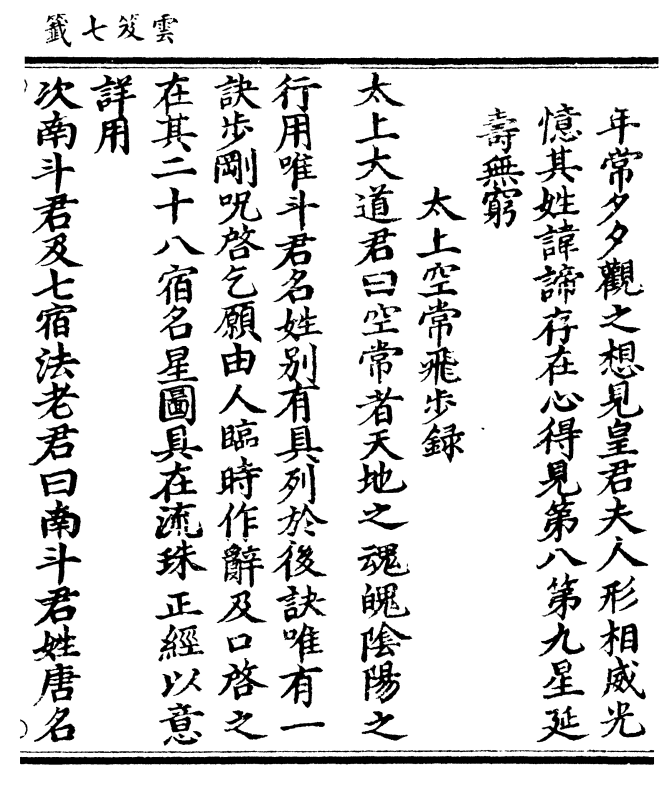 雲笈七籤
年常夕夕觀之想見皇君夫人形相威光
憶其姓諱諦存在心得見第八第九星延
壽無窮
太上空常飛步録
太上大道君曰空常者天地之魂魄陰陽之
行用唯斗君名姓别有具列於後訣唯有一
訣步剛呪啓乞願由人臨時作辭及口啓之
在其二十八宿名星圖具在流珠正經以意
詳用
次南斗君及七宿法老君曰南斗君姓唐名